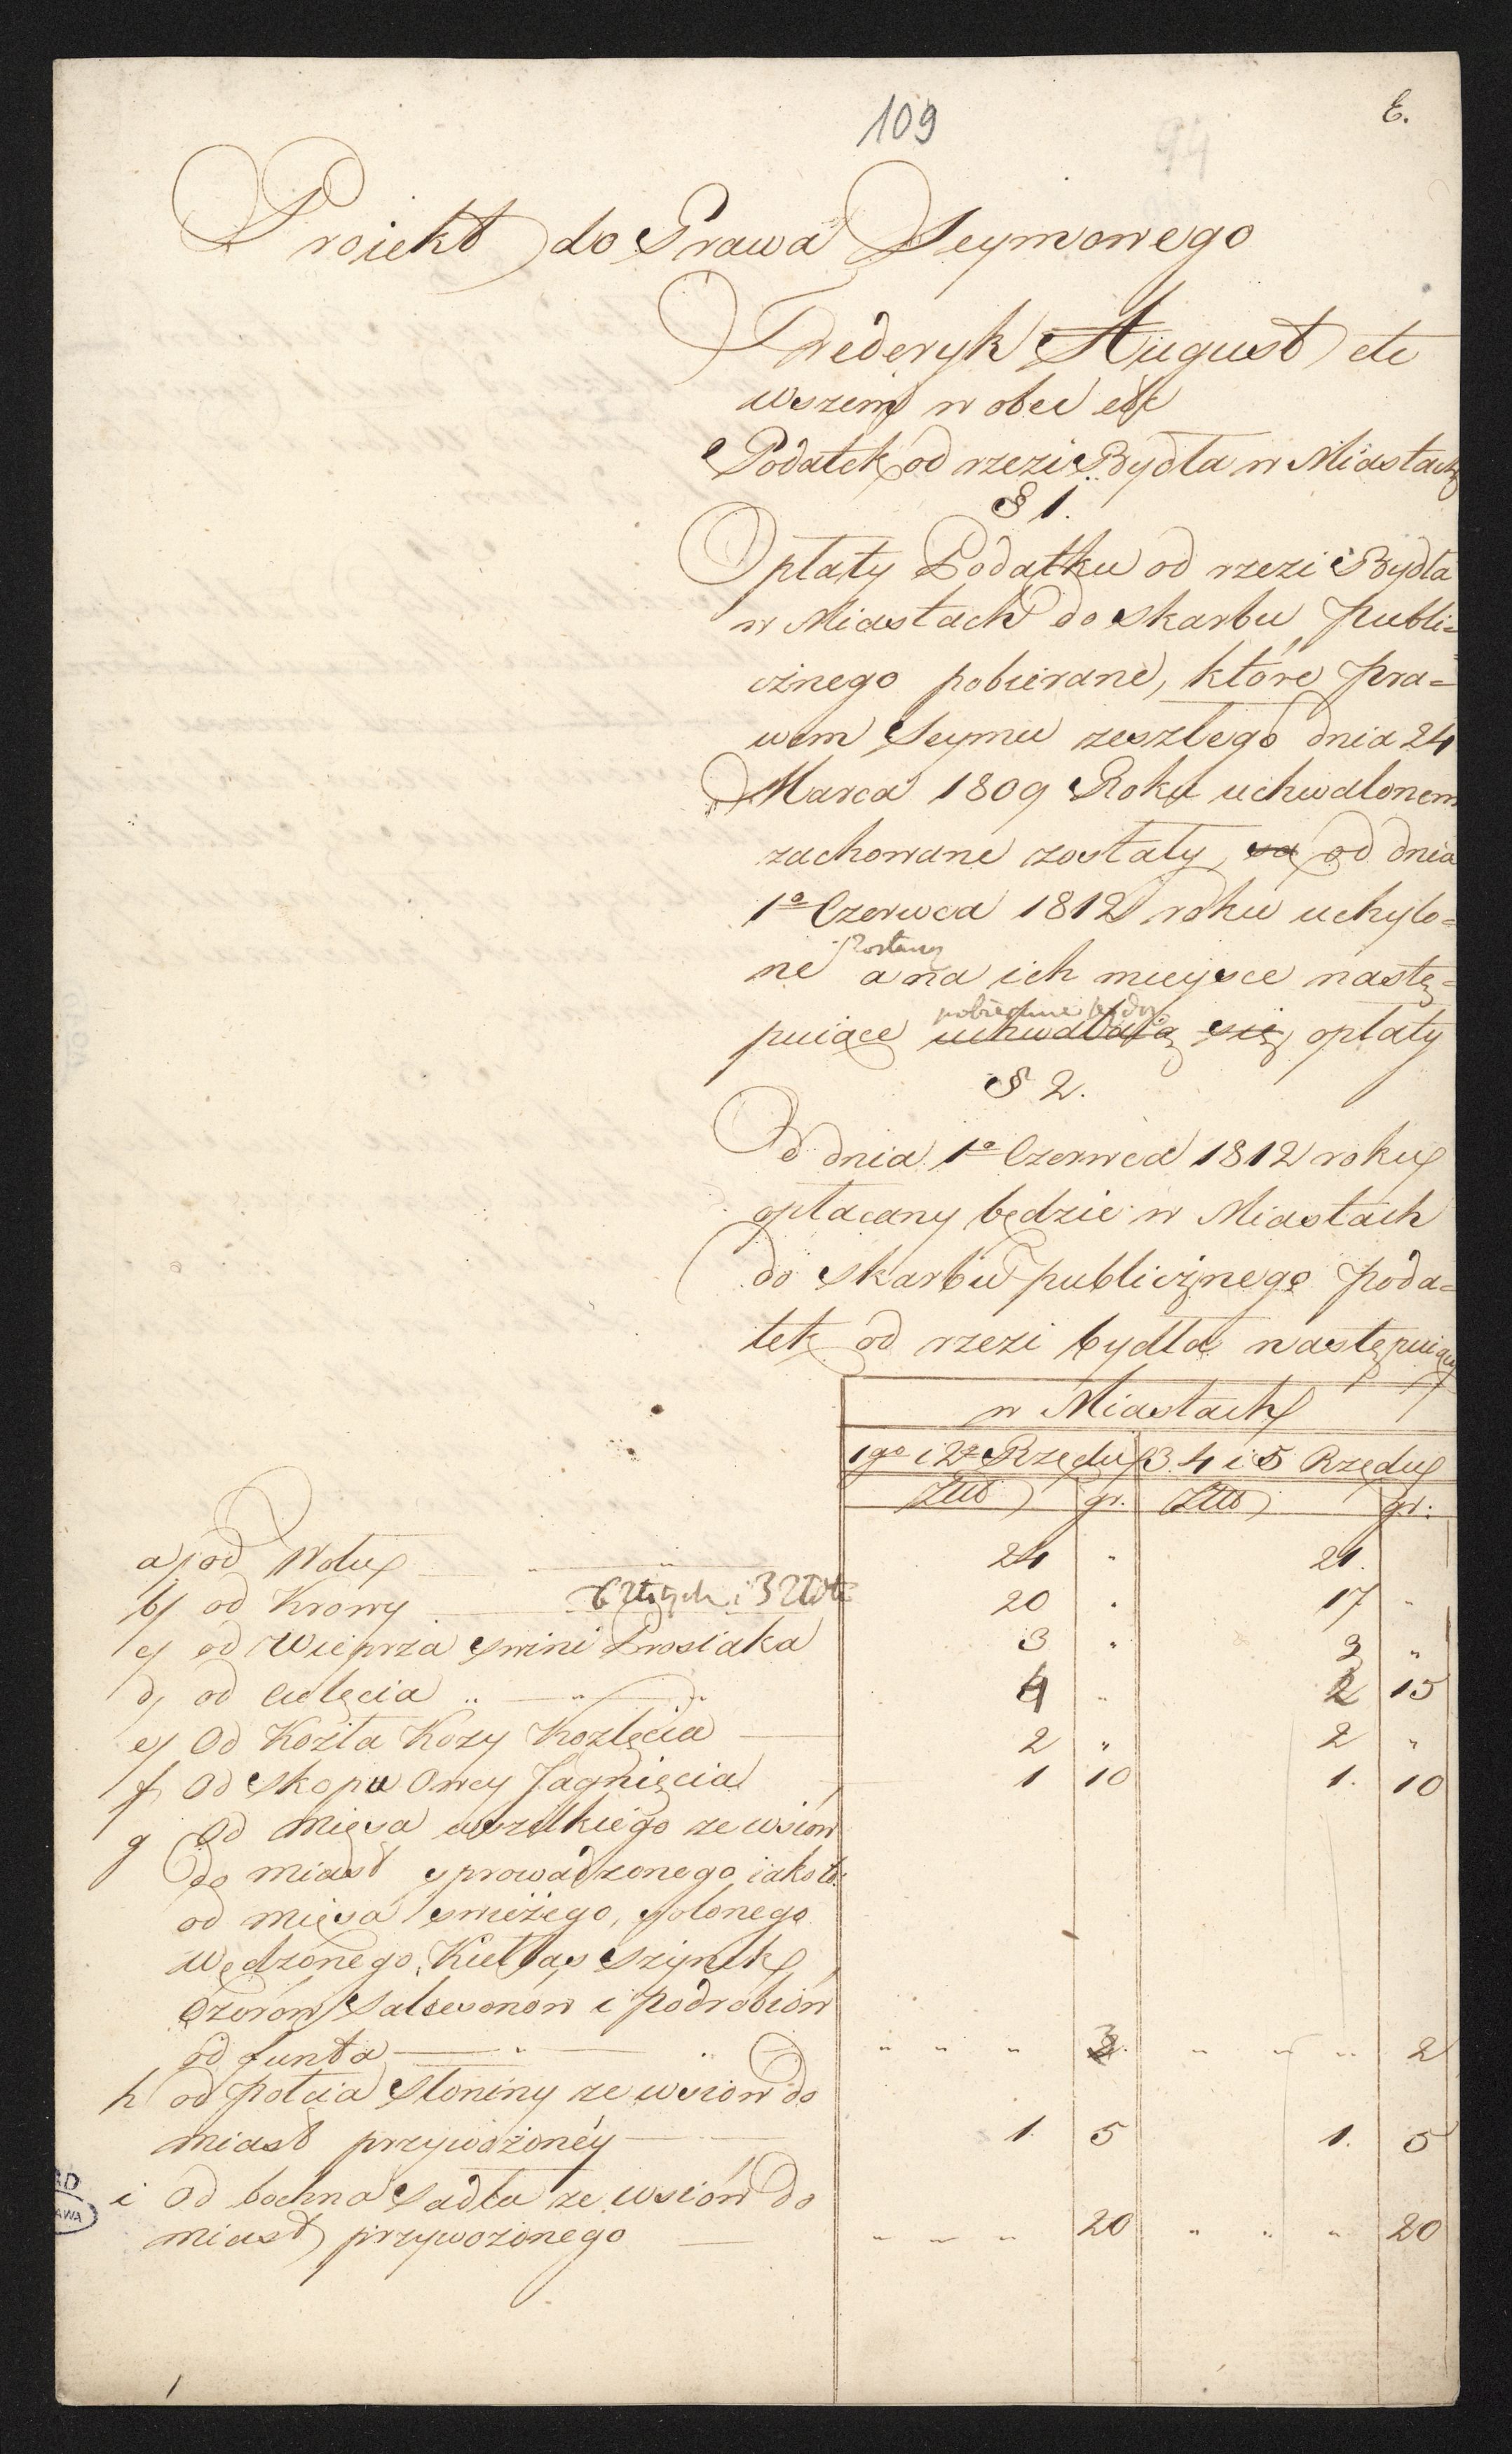 109
E.
94
Proiekt do Prawa Seymowego
Frederyk August etc
wszem w obec etc
Podatek od rzezi Bydła w Miastach
§ 1.
Opłaty Podatku od rzezi Bydła
w Miastach do skarbu publi=
cznego pobierane, które pra=
wem Seymu zeszłego dnia 24
Marca 1809 Roku uchwalonem
zachowane zostały, są od dnia
1º Czerwca 1812 roku uchylo=
zostaną
ne a na ich mieysce nastę=
puiące uchwalaią się opłaty
§ 2.
Od dnia 1º Czerwca 1812 roku
opłacany będzie w Miastach
do skarbu publicznego poda=
tek od rzezi bydła następuiący
w Miastach
1go i 2º Rzędu 3. 4 i 5 Rzędu
Złł gr. Złł gr.
a) od Wołu 24 " 21.
b) od Krowy 20 " 17 "
c) od Wieprza swini Prosiaka 3 " 3 "
d) od cielęcia " " " 4 " 2 15
e) Od Kozła Kozy Koźlęcia 2 " 2 "
f) Od skopu Owcy Jagnięcia 1 10 1. 10
g Od mięsa wszelkiego ze wsiow
do miast sprowadzonego iakoto:
od mięsa swieżego, solonego
wędzonego, Kiełbas Szynek,
Ozorów Salcesonów i podrobiów
od funta " " " " 3 " " " 2
h od połcia Słoniny ze wsiow do
miast przywożoney 1. 5 1. 5
i Od bochna Sadła ze wsiów do
miast przywożonego " " " 20 " " " 20
1